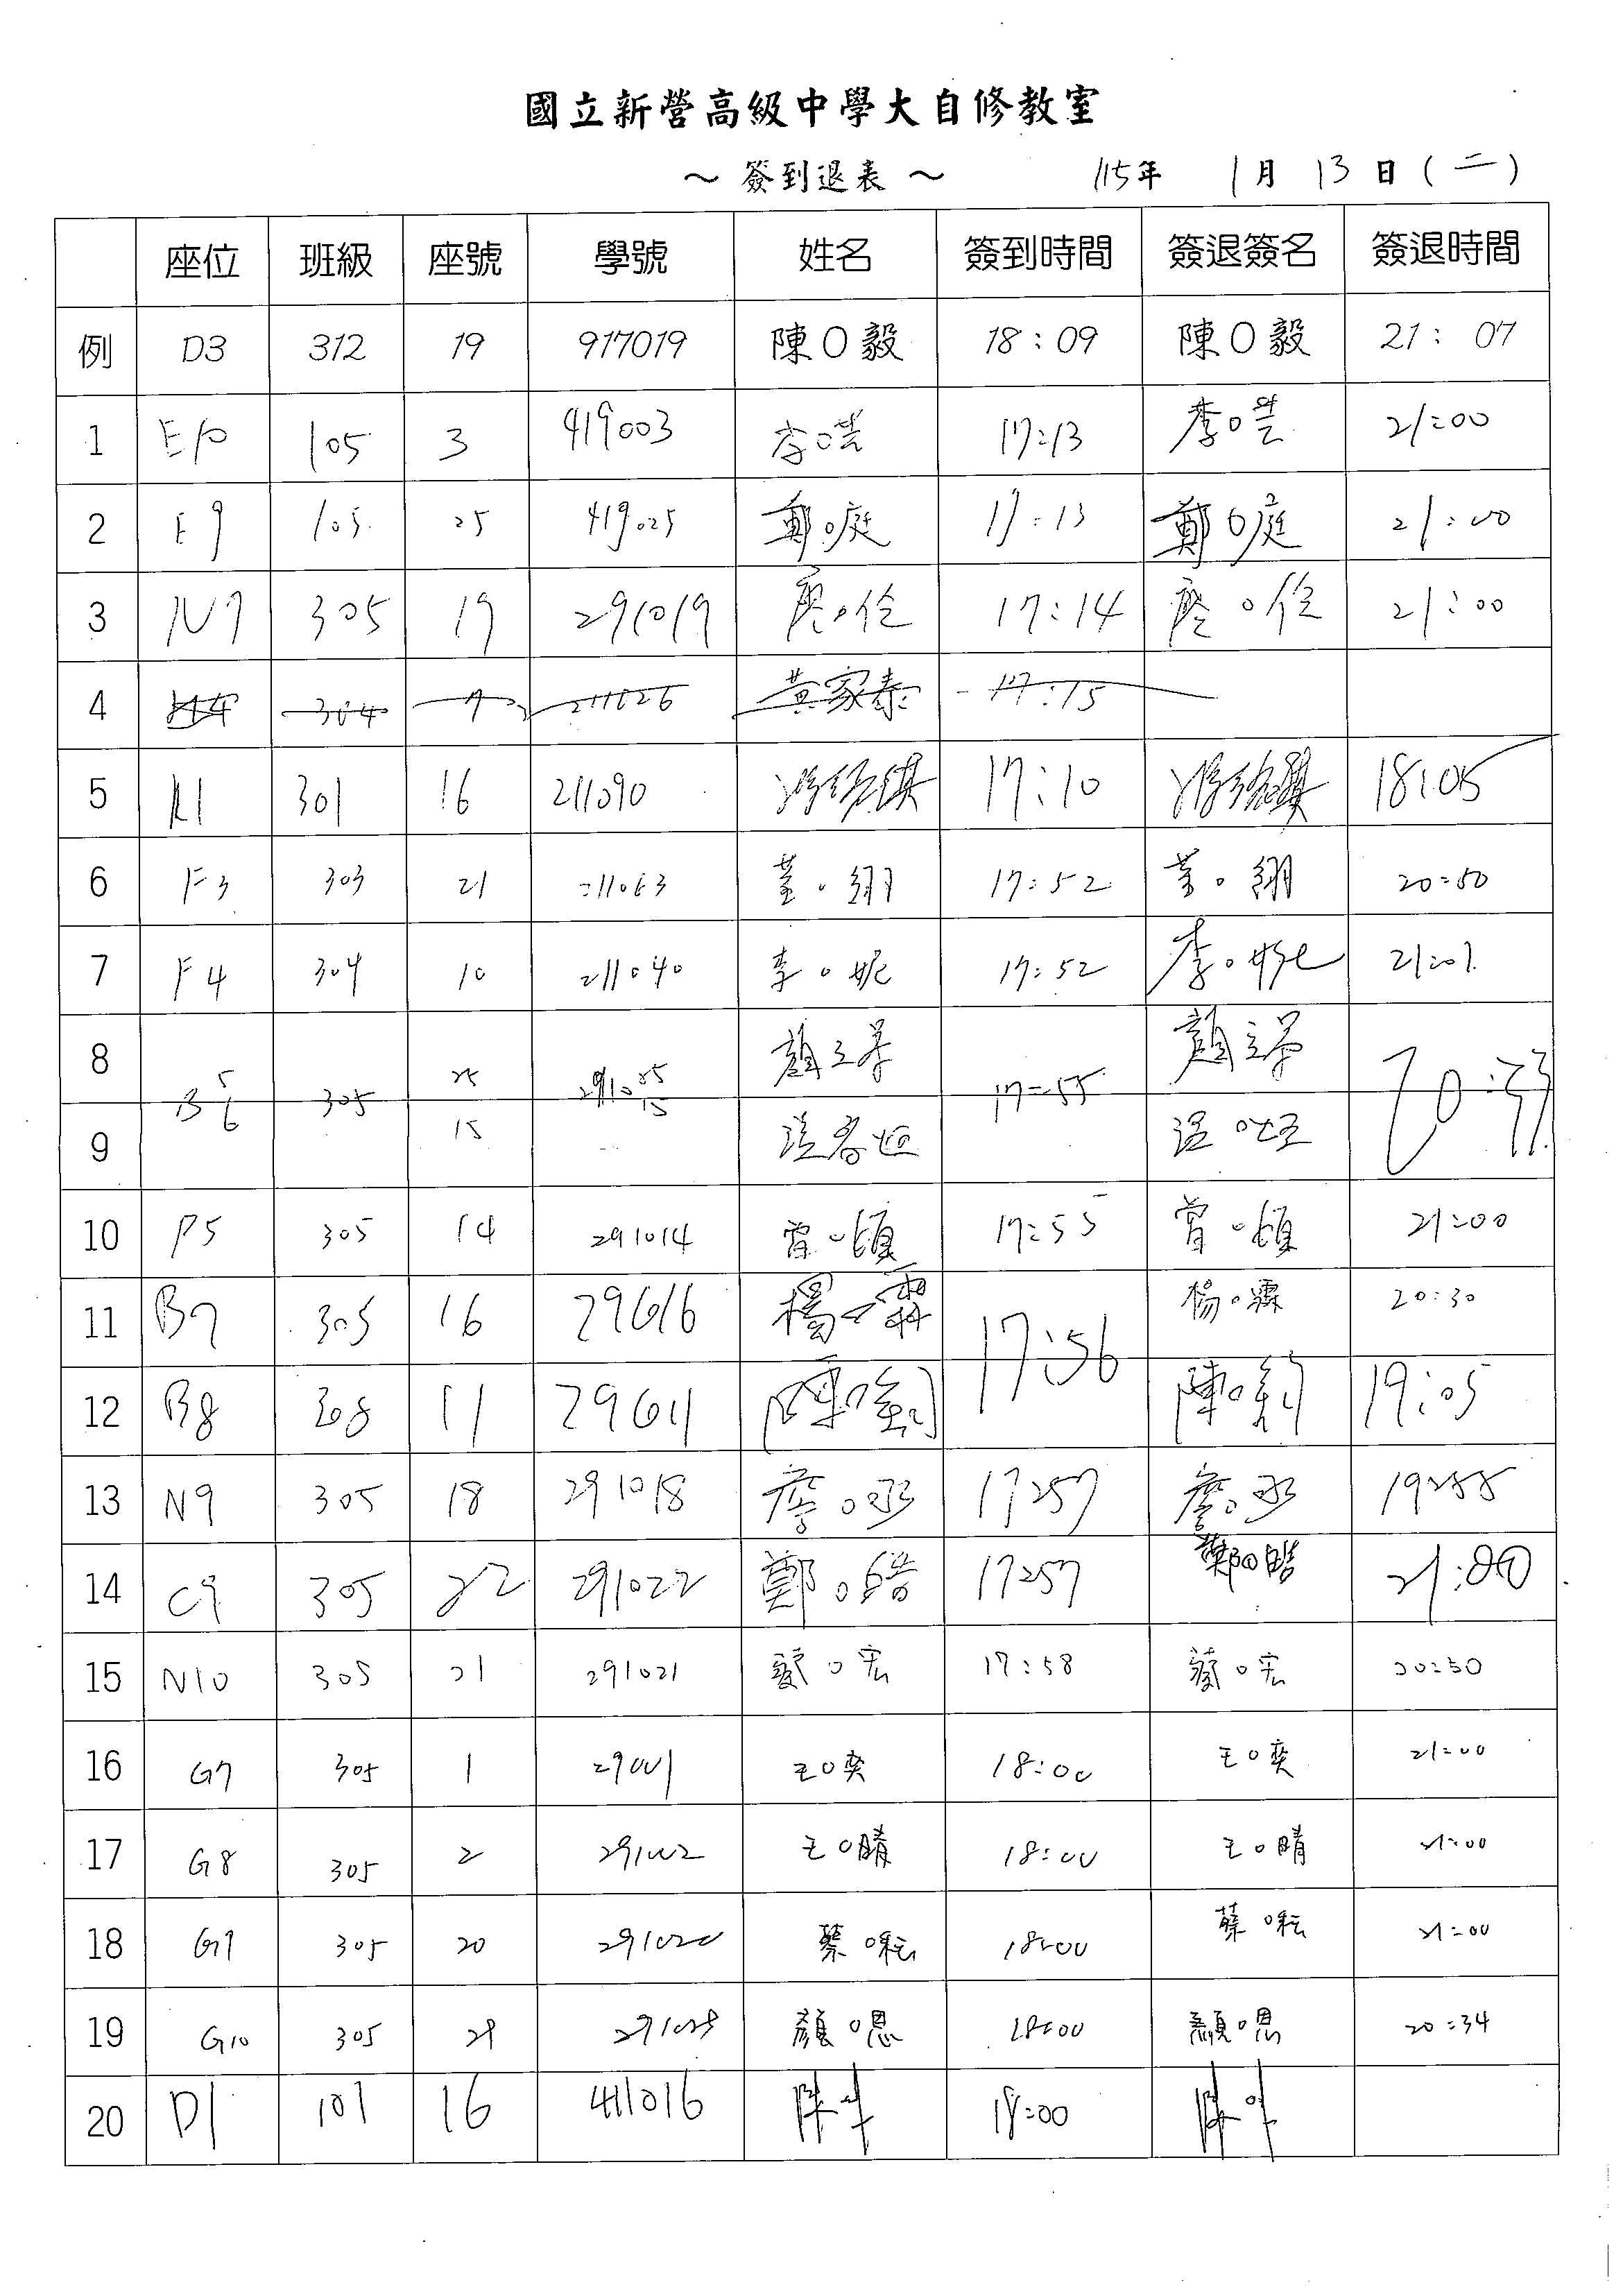 國立新營高級中學大自修教室
～ 簽到退表 ～ 115年 1月 13日(二)
座位 班級 座號 學號 姓名 簽到時間 簽退簽名 簽退時間
例 D3 312 19 917019 陳O毅 18:09 陳O毅 21:07
1 E10 105 3 419003 李O 17:13 李O 21:00
2 E9 105 25 419025 鄭O庭 17:13 鄭O庭 21:00
3 N7 305 19 291019 17:14 21:00
4 304 7 211026 黃家泰 17:15
5 301 16 211090 17:10 18:05
6 F3 303 21 211063 董O翩 17:52 董O翩 20:50
7 F4 304 10 211040 李O妮 17:52 李O妮 21:01
8 B5 305 25 顏 17:55 顏
9 6 15 15 20:33
10 P5 305 14 291014 曾O頎 17:55 曾O頎 21:00
11 B7 305 16 291016 楊O霖 17:56 楊O霖 20:30
12 B8 308 11 陳O 陳O 19:05
13 N9 305 18 291018 詹O丞 17:57 詹O丞 19:55
14 C9 305 22 291022 鄭O皓 17:57 鄭O皓 21:00
15 N10 305 21 291021 蔡O宏 17:58 蔡O宏 20:50
16 G7 305 1 291001 王O奕 18:00 王O奕 21:00
17 G8 305 2 291002 王O晴 18:00 王O晴 21:00
18 G9 305 20 291020 蔡O耘 18:00 蔡O耘 21:00
19 G10 305 28 291028 顏O恩 18:00 顏O恩 20:34
20 D1 101 16 411016 陳 18:00 陳